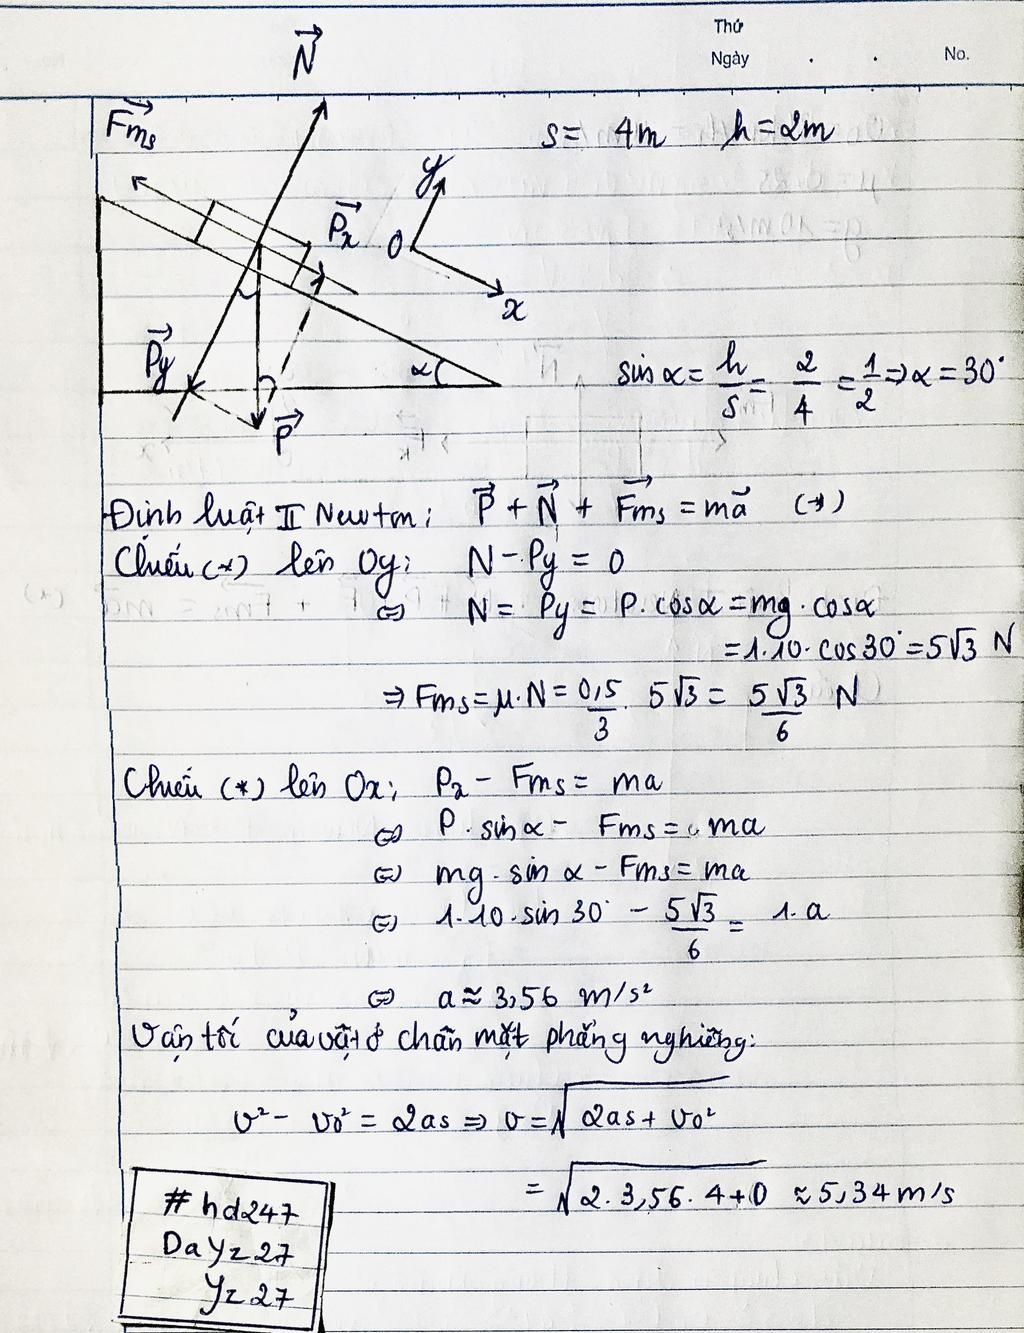 Thứ
Ngày . . No.
N⃗
F⃗ms
s = 4m h = 2m
y
P⃗x
O
x
P⃗y
α
sin α = h/s = 2/4 = 1/2 ⇒ α = 30°
P⃗
Định luật II Newton: P⃗ + N⃗ + F⃗ms = ma⃗ (*)
Chiếu (*) lên Oy: N - Py = 0
⇔ N = Py = P. cosα = mg. cosα
= 1.10. cos30° = 5√3 N
⇒ Fms = μ.N = 0,5/3 . 5√3 = 5√3/6 N
Chiếu (*) lên Ox: Px - Fms = ma
⇔ P. sin α - Fms = ma
⇔ mg. sin α - Fms = ma
⇔ 1.10. sin 30° - 5√3/6 = 1. a
⇔ a ≈ 3,56 m/s²
Vận tốc của vật ở chân mặt phẳng nghiêng:
v² - v₀² = 2as ⇒ v = √(2as + v₀²)
= √(2. 3,56. 4+0) ≈ 5,34 m/s
# hd247
DaYz27
Yz27